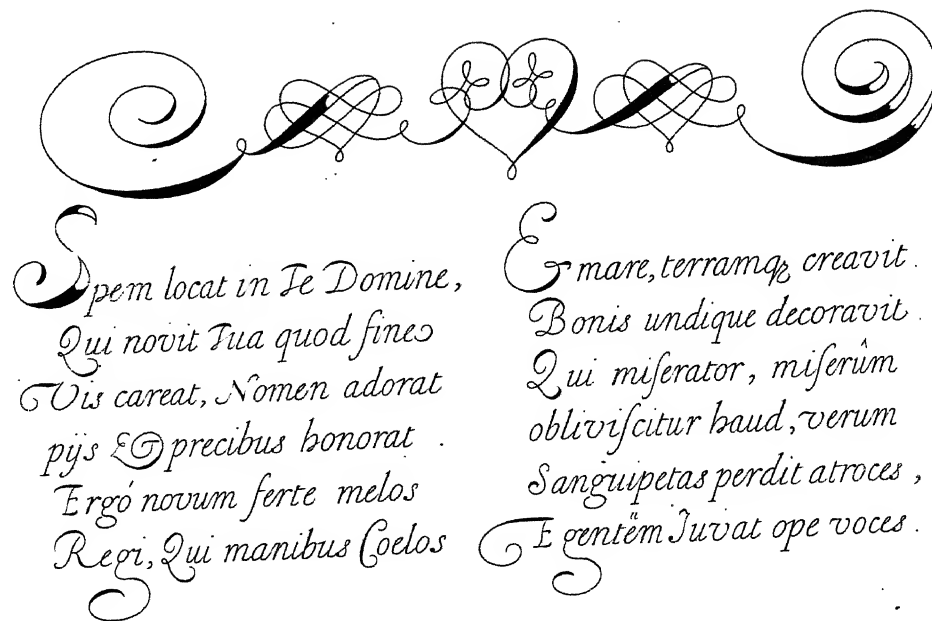 Spem locat in Te Domine,
Qui novit Tua quod fine
Vis careat, Nomen adorat
pijs & precibus honorat .
Ergó novum ferte melos
Regi, Qui manibus Coelos
Et mare, terramqꝫ creavit .
Bonis undique decoravit .
Qui miſerator, miſerûm
obliviſcitur haud, verum
Sanguipetas perdit atroces ,
Egentëm Juvat ope voces .